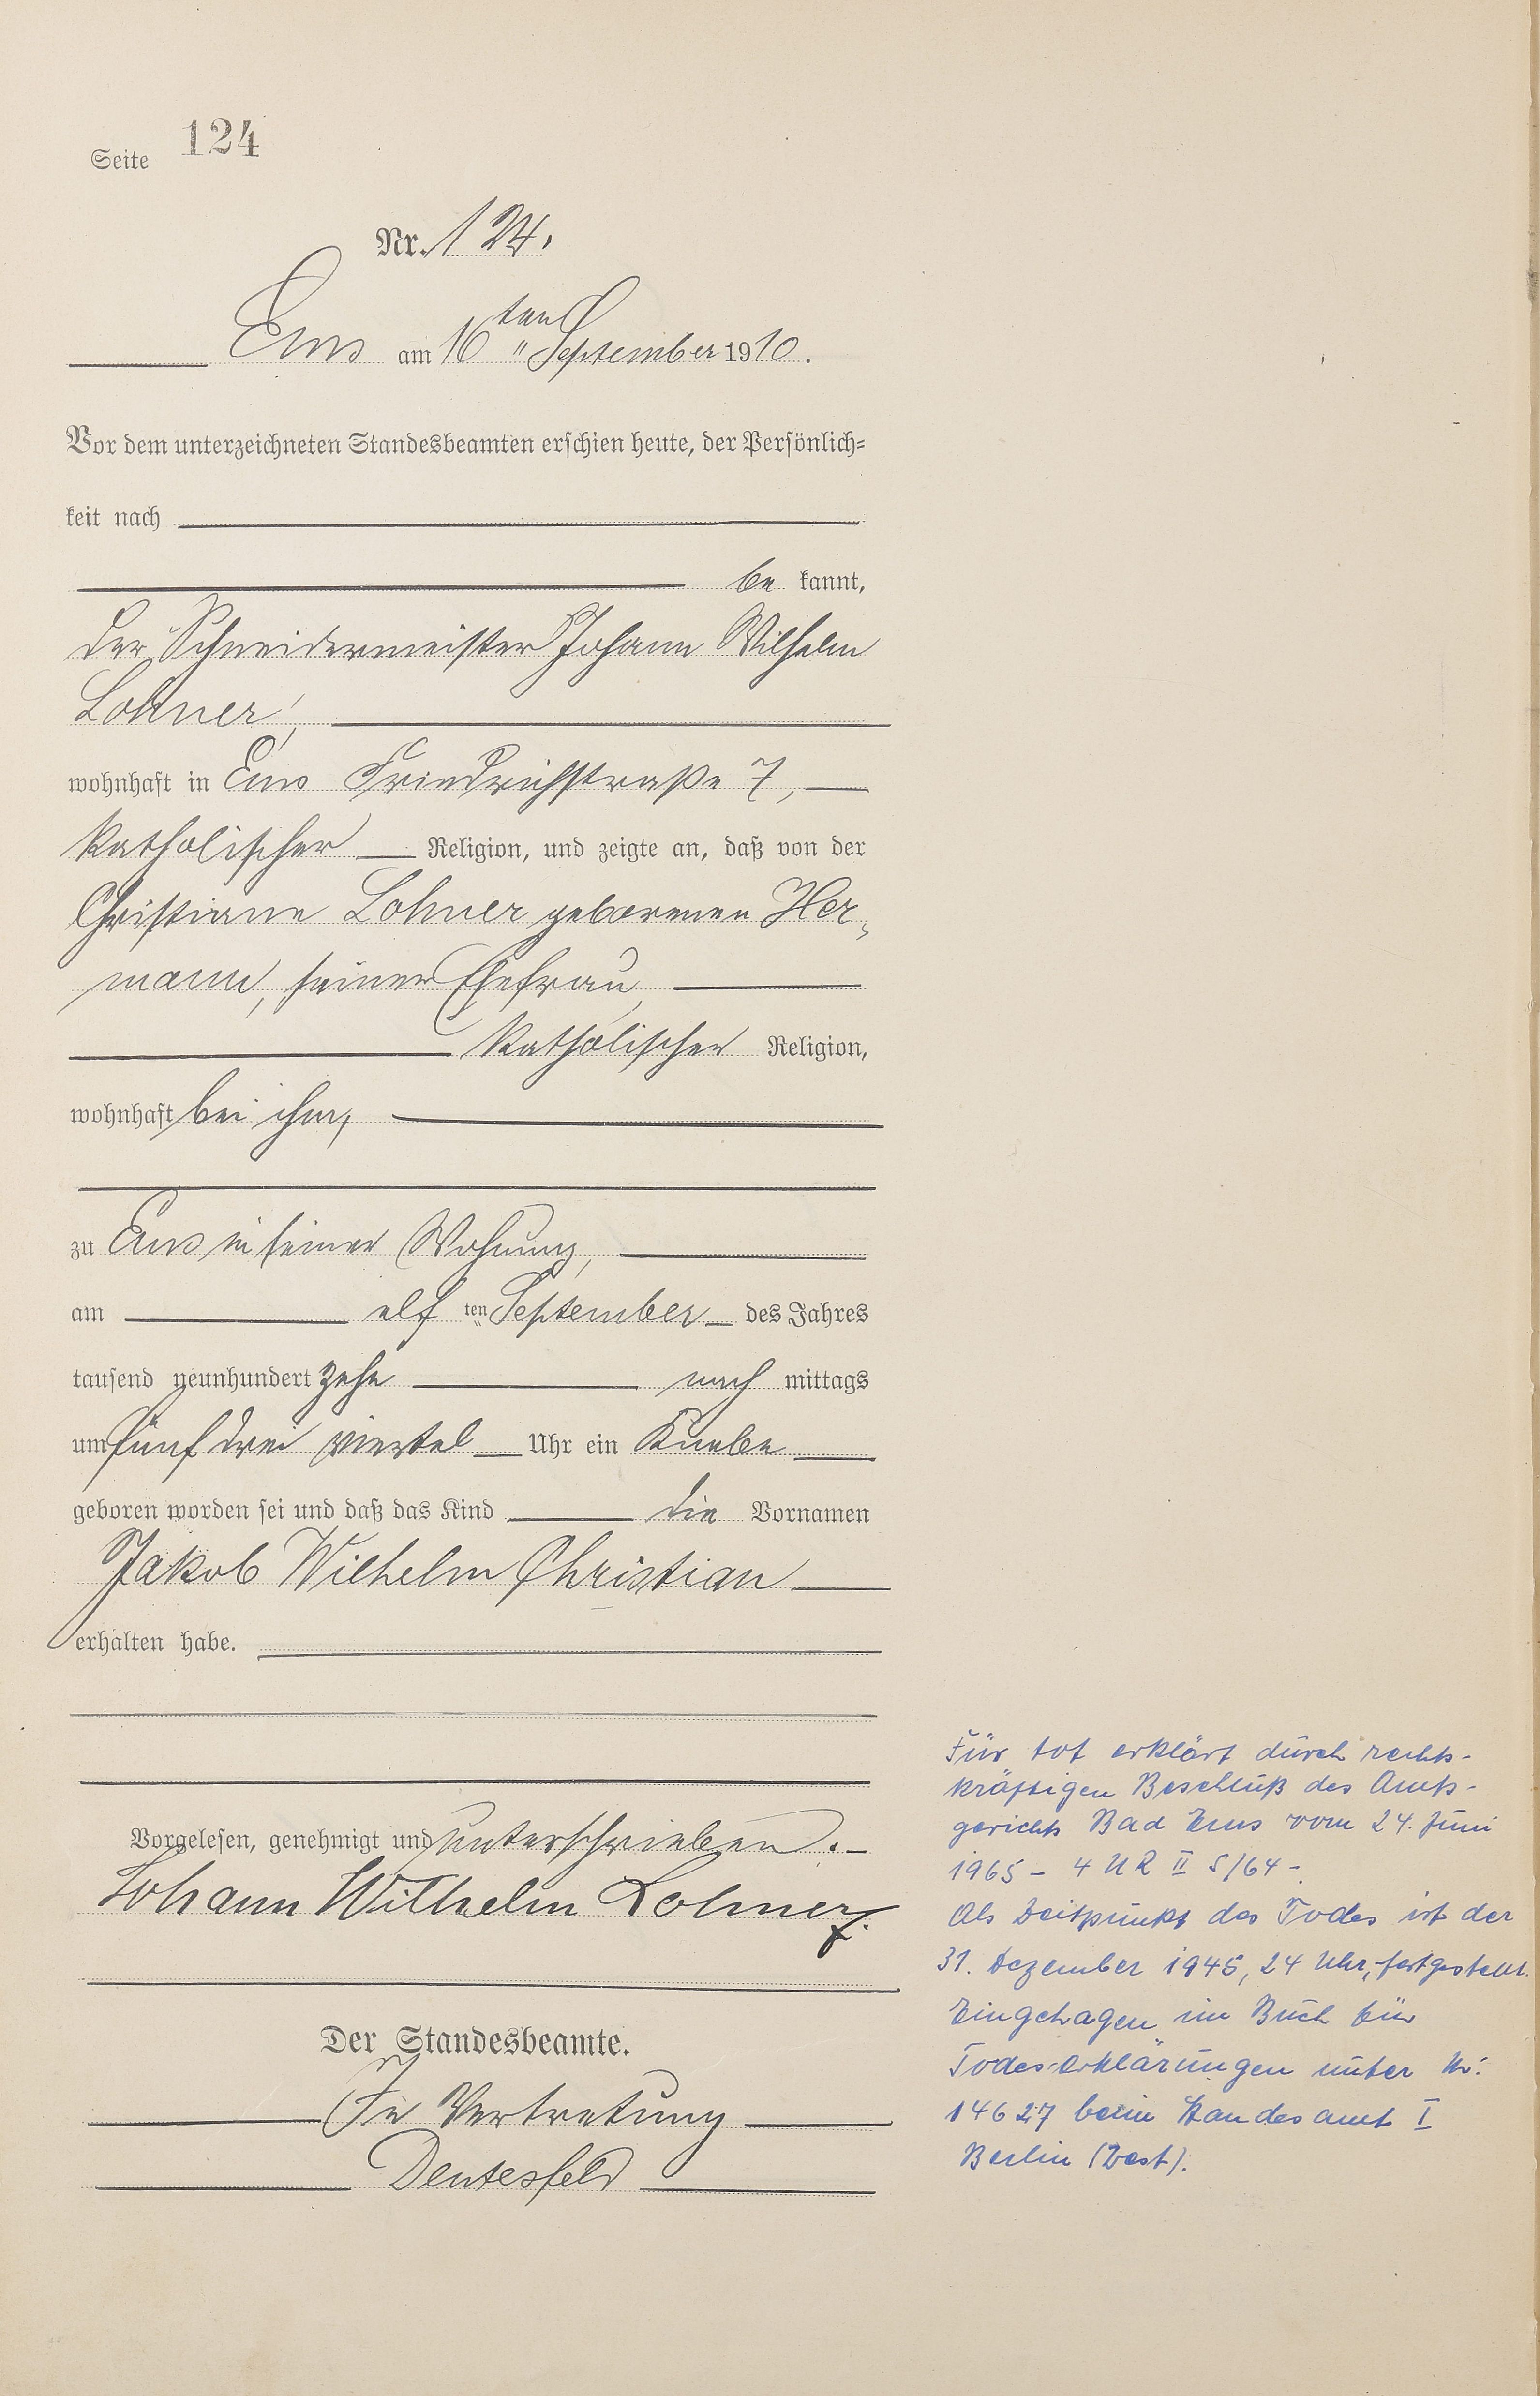 Seite 124
Nr. 124.
Ems am 16ten September 1910.
Vor dem unterzeichneten Standesbeamten erschien heute, der Persönlich=
keit nach
be kannt,
der Schneidermeister Johann Wilhelm
Lohner,
wohnhaft in Ems Friedrichstraße 7,
katholischer Religion, und zeigte an, daß von der
Christiane Lohner geborenen Her-
mann, seiner Ehefrau,
katholischer Religion,
wohnhaft bei ihm,
zu Ems in seiner Wohnung,
am elf ten September des Jahres
tausend neunhundert zehn nach mittags
um fünf drei viertel Uhr ein Knabe
geboren worden sei und daß das Kind die Vornamen
Jakob Wilhelm Christian
erhalten habe.
Vorgelesen, genehmigt und unterschrieben.
Johann Wilhelm Lohner
Der Standesbeamte.
In Vertretung
Für tot erklärt durch rechts-
kräftigen Beschluß des Amts-
gerichts Bad Ems vom 24. Juni
1965 - 4 UR II 5/64 -.
Als Zeitpunkt des Todes ist der
31. Dezember 1945, 24 Uhr, festgestellt.
Eingetragen im Buch für
Todeserklärungen unter Nr.
14627 beim Standesamt I
Berlin (West).